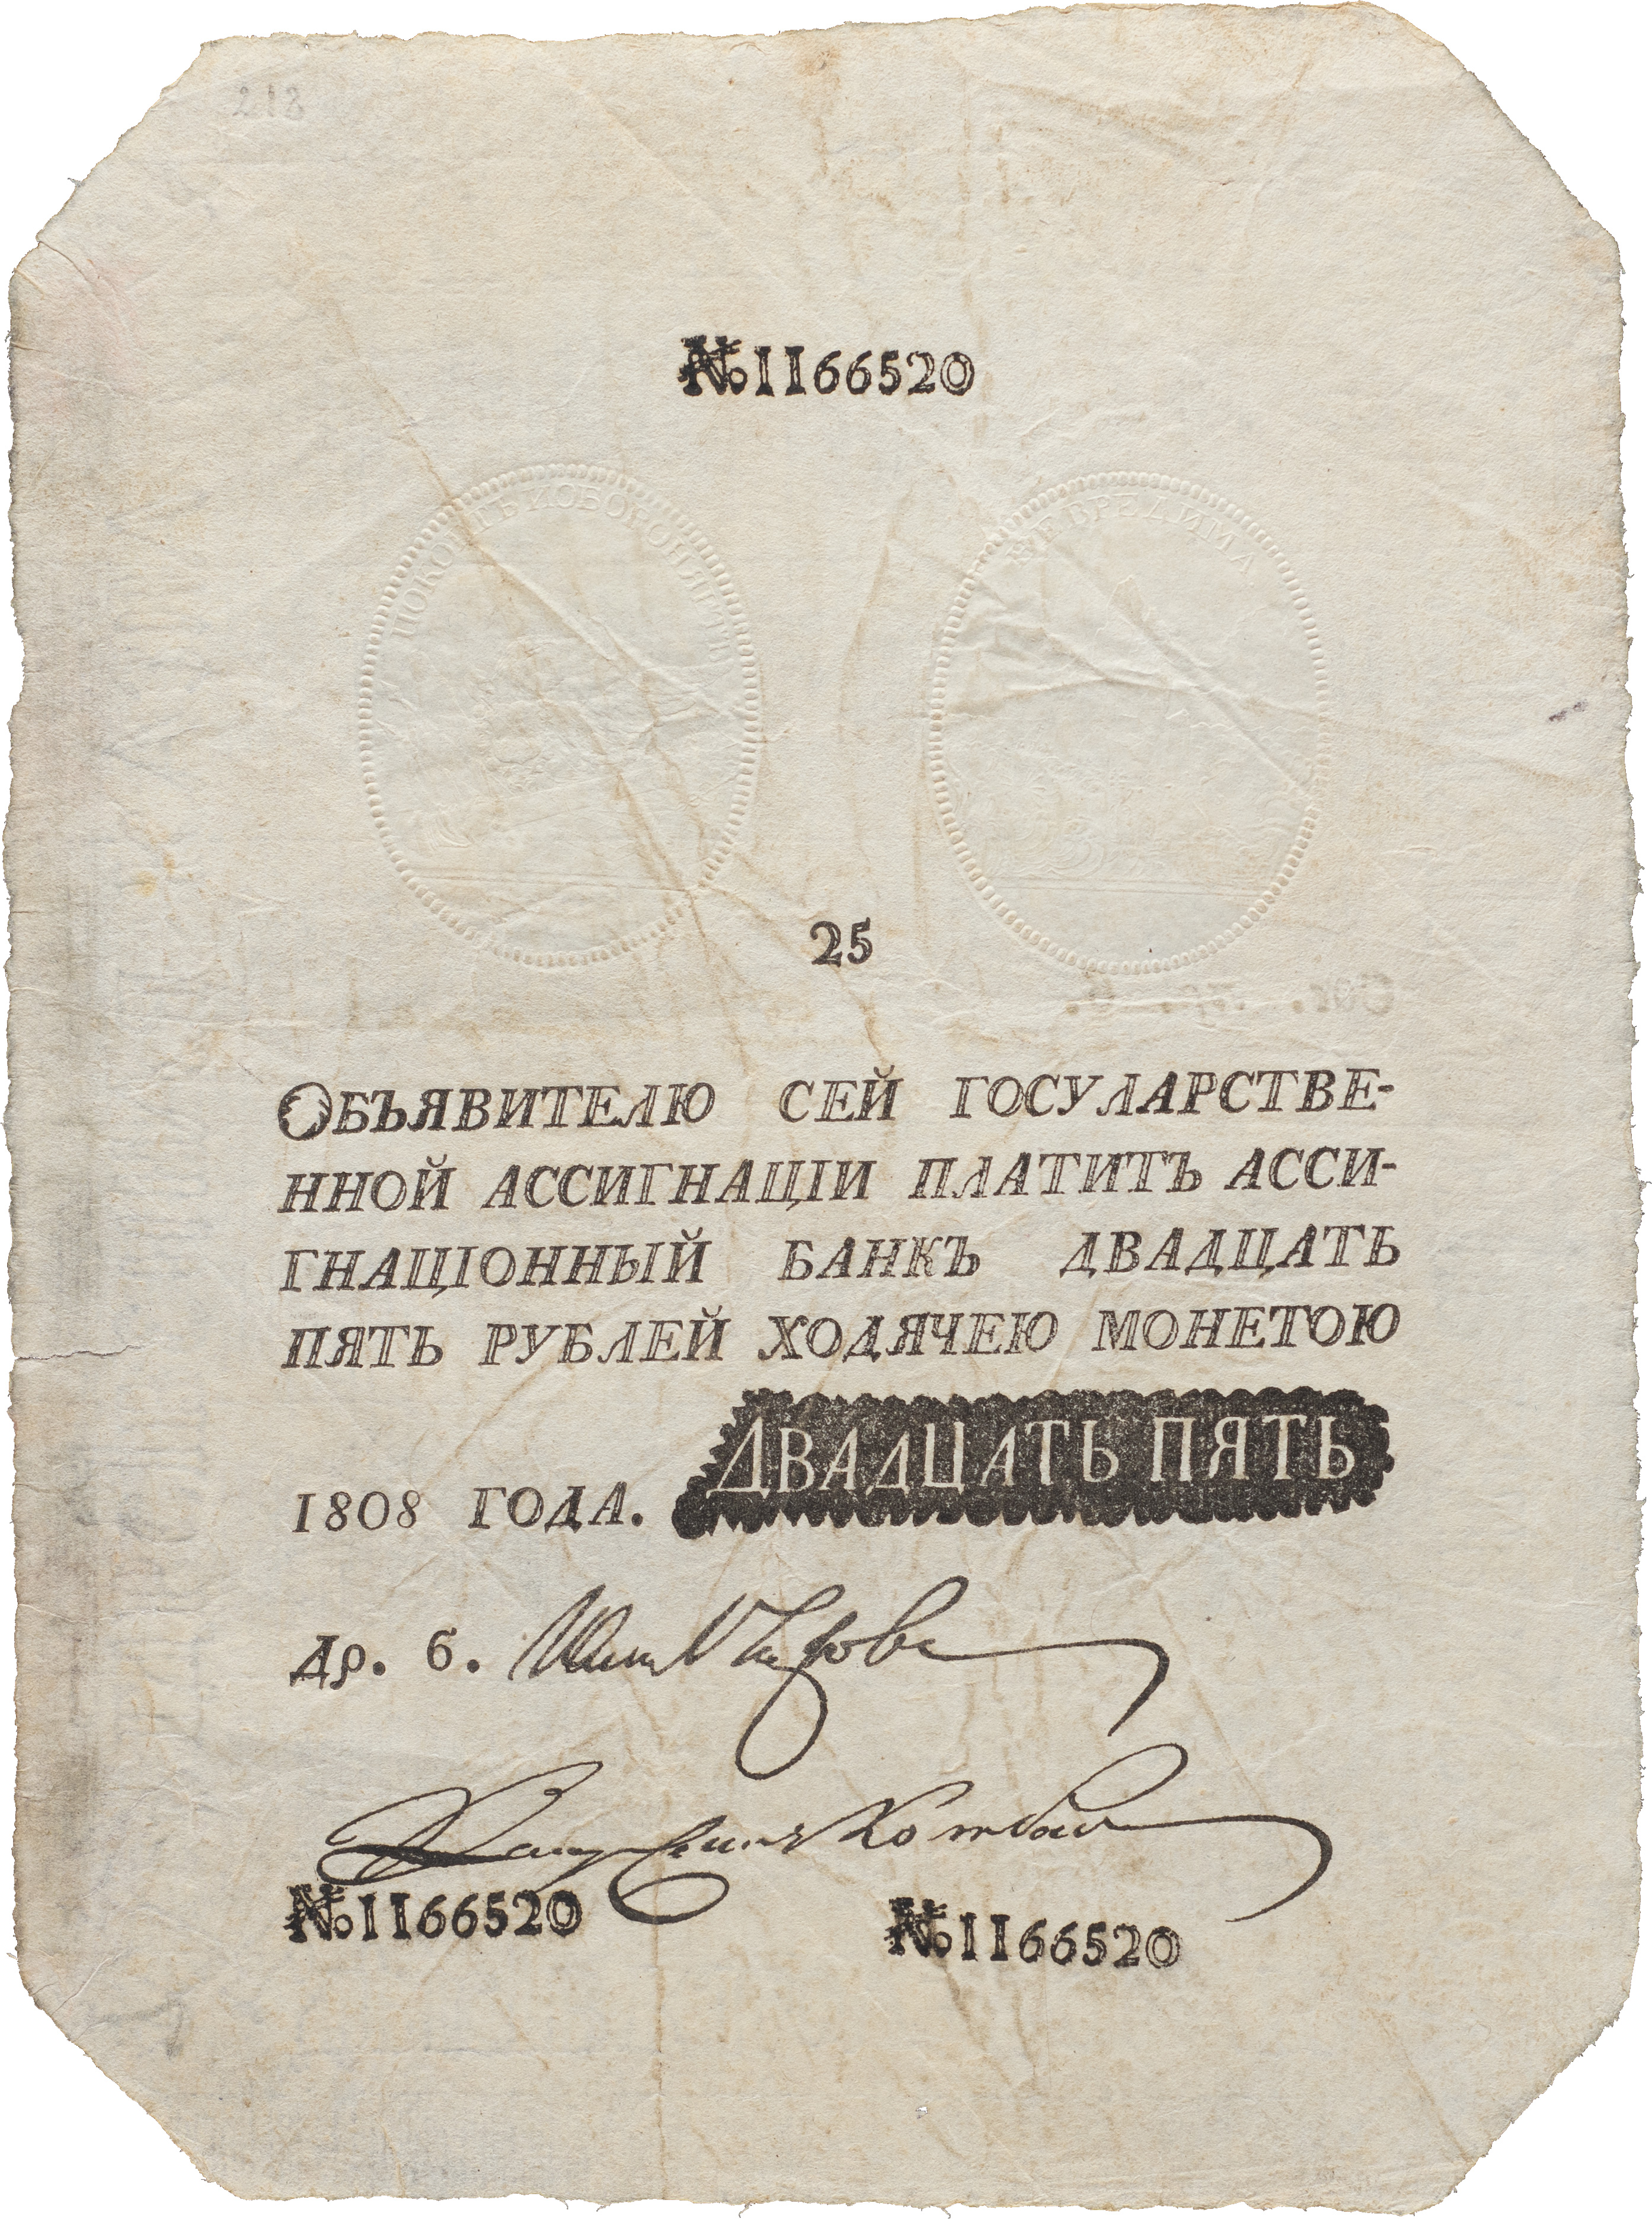 218
№ 1166520
ПОКОИТЪ И ОБОРОНЯЕТЪ
НЕ ВРЕДИМА
25
ОБЪЯВИТЕЛЮ СЕЙ ГОСУЛАРСТВЕ-
ННОЙ АССИГНАЦІИ ПЛАТИТЪ АССИ-
ГНАЦІОННЫЙ БАНКЪ ДВАДЦАТЬ
ПЯТЬ РУБЛЕЙ ХОДЯЧЕЮ МОНЕТОЮ
1808 ГОДА. ДВАДЦАТЬ ПЯТЬ
Др. 6.
№ 1166520 № 1166520